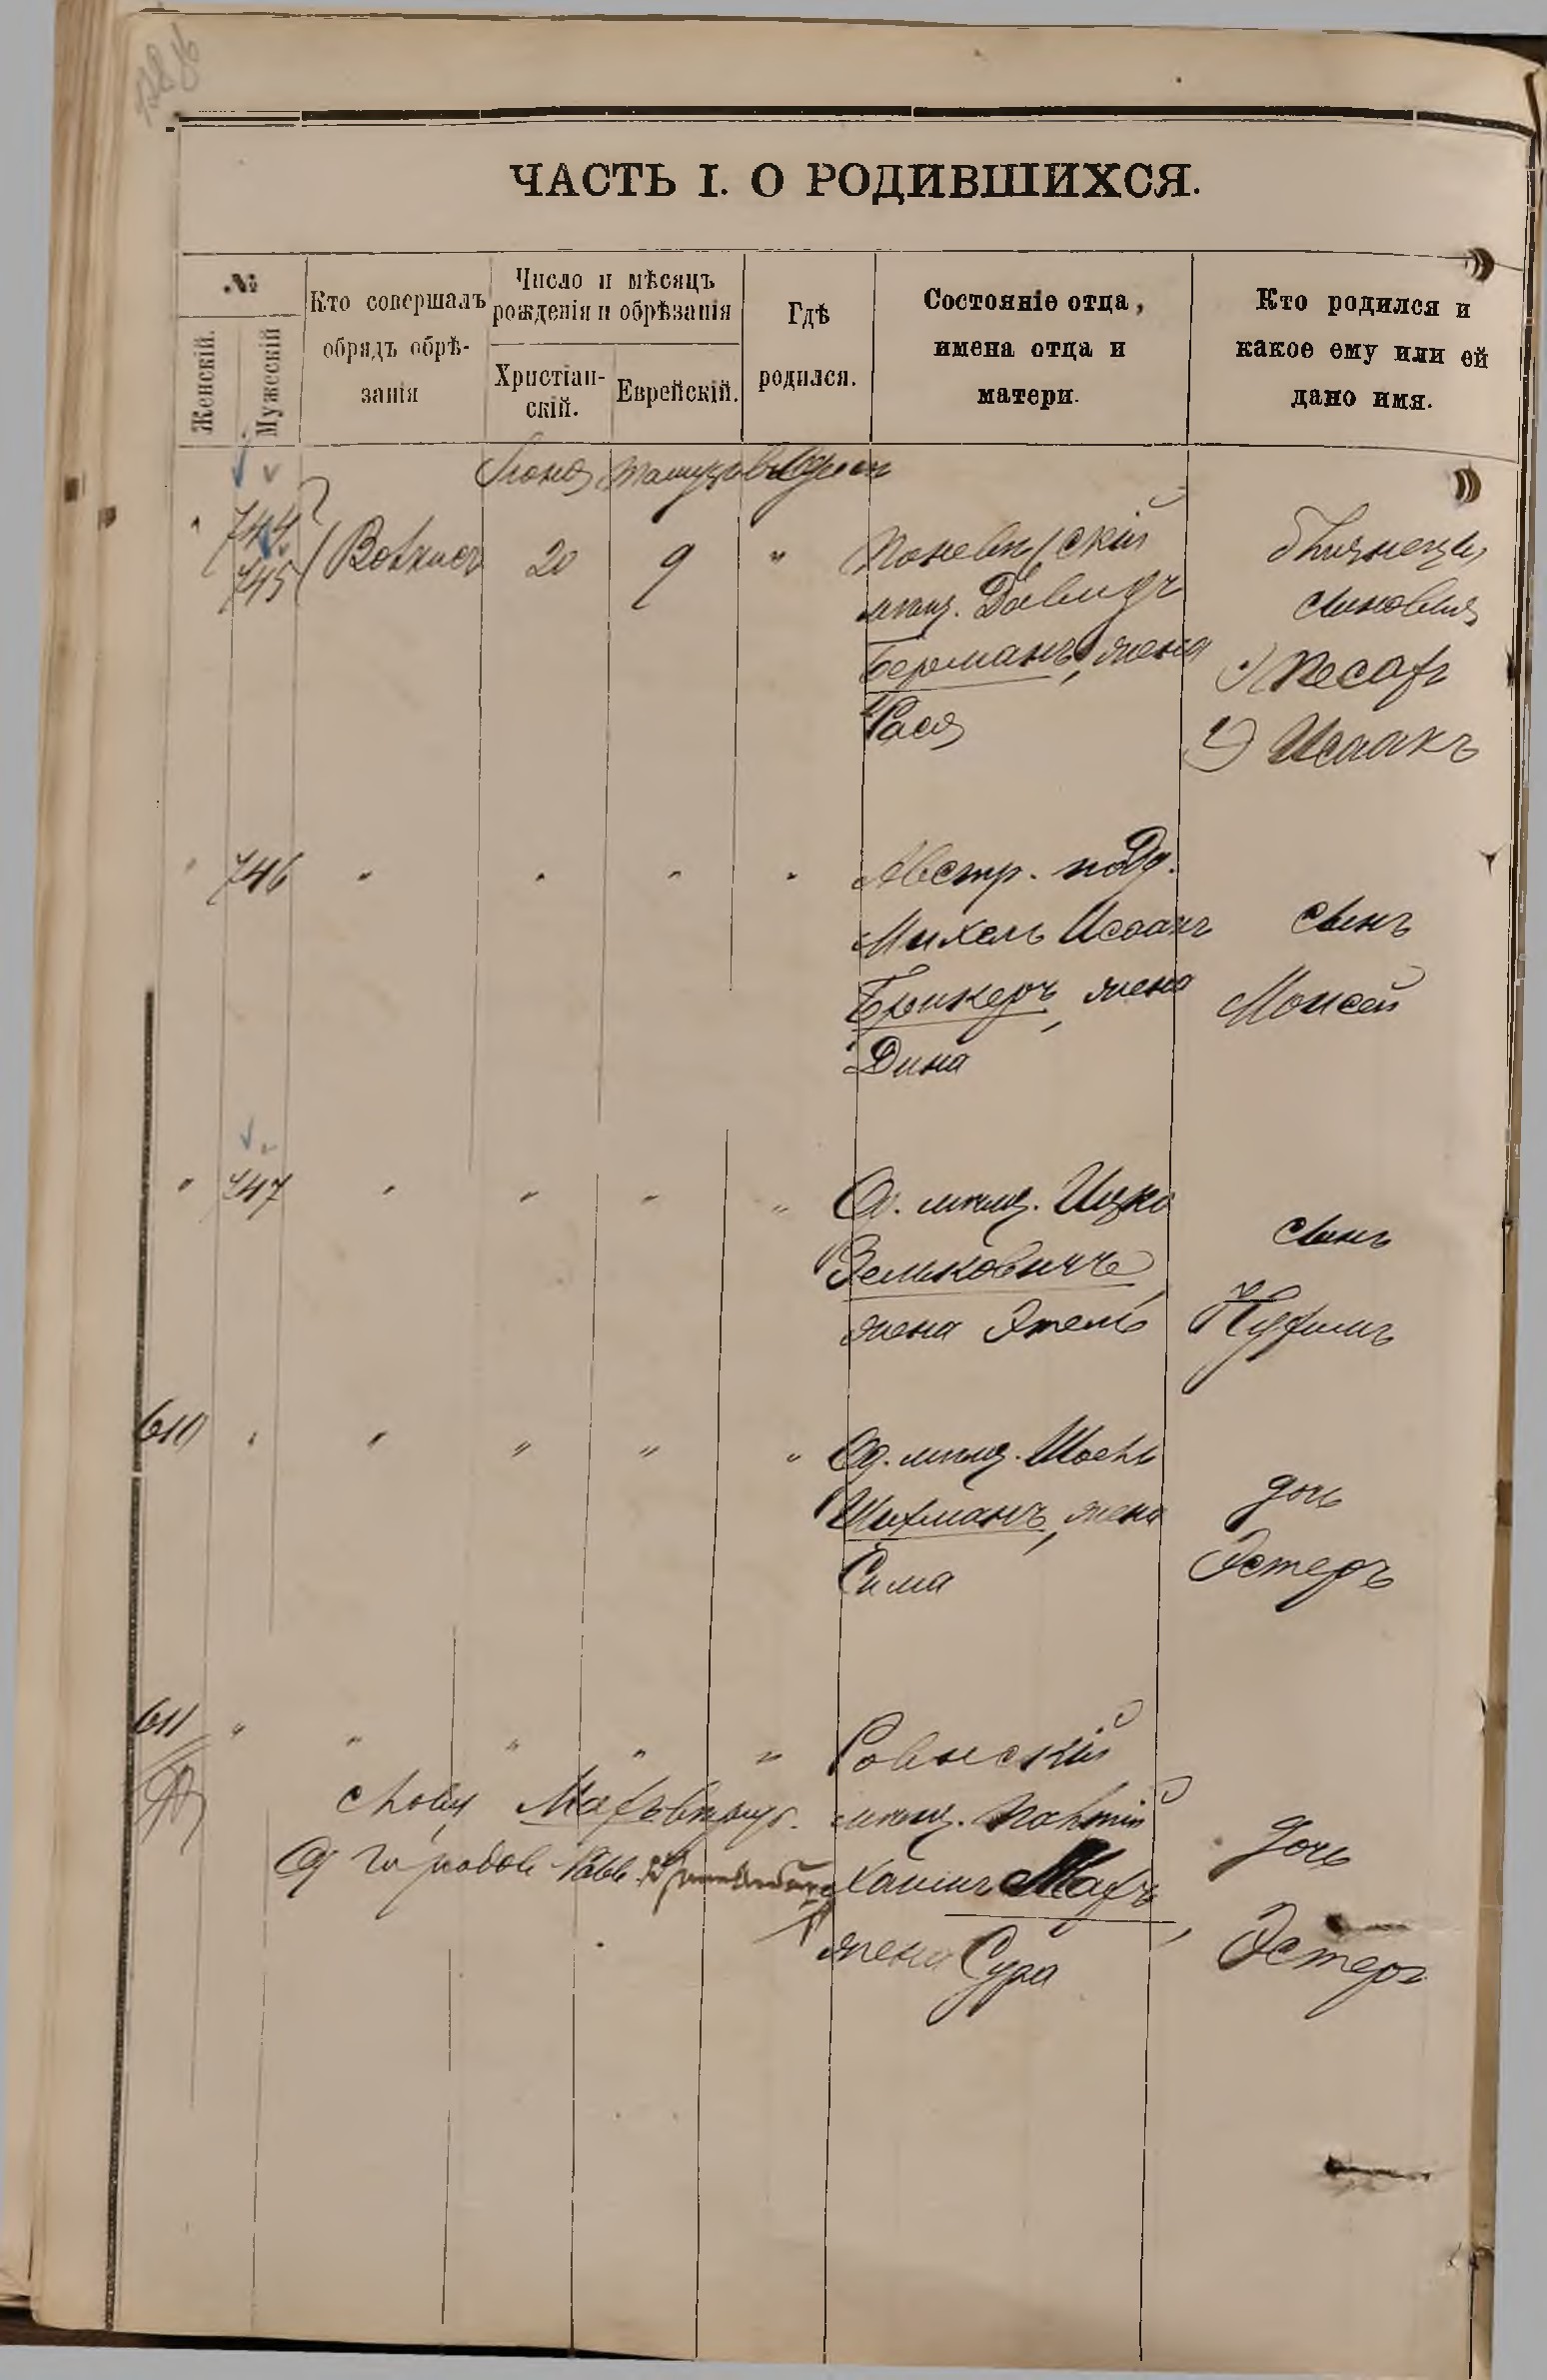 ЧАСТЬ I. О РОДИВШИХСЯ.
№
Женскій.
Мужескій
Кто совершалъ
обрядъ обрѣ-
занія
Число и мѣсяцъ
рожденія и обрѣзанія
Христіан-
скій.
Еврейскій.
Гдѣ
родился.
Состояніе отца,
имена отца и
матери.
Кто родился и
какое ему или ей
дано имя.
Іюня
744
745
20 9 "
мѣщ. Давидъ
Берманъ, жена
Рася
близнецы
сыновья
Песахъ
2) Исаакъ
" 746 " " " " Австр. подд.
Михель Исаакъ
Брикеръ, жена
Дина
сынъ
Моисей
" 747 " " " " О. мѣщ. Ицко
Зельковичъ,
жена Этель
сынъ
610 " " " " " Од. мѣщ.
Шихманъ, жена
Сима
дочь
Эстеръ
611 " " " " " Ровенскій
мѣщ.
Хаимъ Махъ,
жена Сура
дочь
Эстеръ
слову Махъ
Од городов Равв.